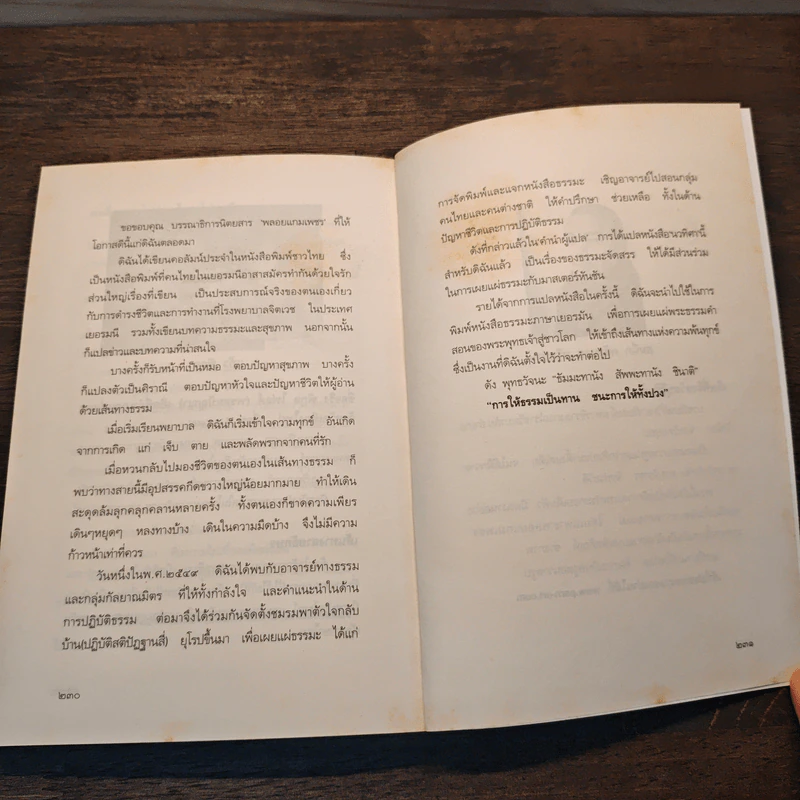 ขอขอบคุณ บรรณาธิการนิตยสาร 'พลอยแกมเพชร' ที่ให้
โอกาสดีนี้แก่ดิฉันตลอดมา
ดิฉันได้เขียนคอลัมน์ประจำในหนังสือพิมพ์ชาวไทย ซึ่ง
เป็นหนังสือพิมพ์ที่คนไทยในเยอรมนีอาสาสมัครทำกันด้วยใจรัก
ส่วนใหญ่เรื่องที่เขียน เป็นประสบการณ์จริงของตนเองเกี่ยว
กับการดำรงชีวิตและการทำงานที่โรงพยาบาลจิตเวช ในประเทศ
เยอรมนี รวมทั้งเขียนบทความธรรมะและสุขภาพ นอกจากนั้น
ก็แปลข่าวและบทความที่น่าสนใจ
บางครั้งก็รับหน้าที่เป็นหมอ ตอบปัญหาสุขภาพ บางครั้ง
ก็แปลงตัวเป็นศิราณี ตอบปัญหาหัวใจและปัญหาชีวิตให้ผู้อ่าน
ด้วยเส้นทางธรรม
เมื่อเริ่มเรียนพยาบาล ดิฉันก็เริ่มเข้าใจความทุกข์ อันเกิด
จากการเกิด แก่ เจ็บ ตาย และพลัดพรากจากคนที่รัก
เมื่อหวนกลับไปมองชีวิตของตนเองในเส้นทางธรรม ก็
พบว่าทางสายนี้มีอุปสรรคกีดขวางใหญ่น้อยมากมาย ทำให้เดิน
สะดุดล้มลุกคลุกคลานหลายครั้ง ทั้งตนเองก็ขาดความเพียร
เดินๆหยุดๆ หลงทางบ้าง เดินในความมืดบ้าง จึงไม่มีความ
ก้าวหน้าเท่าที่ควร
วันหนึ่งในพ.ศ.๒๕๔๙ ดิฉันได้พบกับอาจารย์ทางธรรม
และกลุ่มกัลยาณมิตร ที่ให้ทั้งกำลังใจ และคำแนะนำในด้าน
การปฏิบัติธรรม ต่อมาจึงได้ร่วมกันจัดตั้งชมรมพาตัวใจกลับ
บ้าน(ปฏิบัติสติปัฏฐานสี่) ยุโรปขึ้นมา เพื่อเผยแผ่ธรรมะ ได้แก่
๒๓๐
การจัดพิมพ์และแจกหนังสือธรรมะ เชิญอาจารย์ไปสอนกลุ่ม
คนไทยและคนต่างชาติ ให้คำปรึกษา ช่วยเหลือ ทั้งในด้าน
ปัญหาชีวิตและการปฏิบัติธรรม
ดังที่กล่าวแล้วใน'คำนำผู้แปล' การได้แปลหนังสือนวทิศานี้
สำหรับดิฉันแล้ว เป็นเรื่องของธรรมะจัดสรร ให้ได้มีส่วนร่วม
ในการเผยแผ่ธรรมะกับมาสเตอร์ทันชัน
รายได้จากการแปลหนังสือในครั้งนี้ ดิฉันจะนำไปใช้ในการ
พิมพ์หนังสือธรรมะภาษาเยอรมัน เพื่อการเผยแผ่พระธรรมคำ
สอนของพระพุทธเจ้าสู่ชาวโลก ให้เข้าถึงเส้นทางแห่งความพ้นทุกข์
ซึ่งเป็นงานที่ดิฉันตั้งใจไว้ว่าจะทำต่อไป
ดัง พุทธวัจนะ "ธัมมะทานัง สัพพะทานัง ชินาติ"
"การให้ธรรมเป็นทาน ชนะการให้ทั้งปวง"
๒๓๑